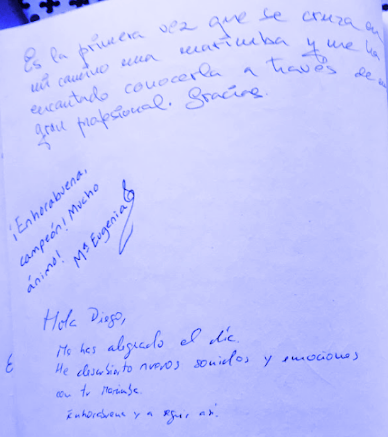 Es la primera vez que se cruza en
mi camino una marimba y me ha
encantado conocerla a través de un
gran profesional. Gracias.
¡Enhorabuena,
campeón! Mucho
ánimo! Mª Eugenia
Hola Diego,
Me has alegrado el día.
He descubierto nuevos sonidos y emociones
con tu marimba.
Enhorabuena y a seguir así.